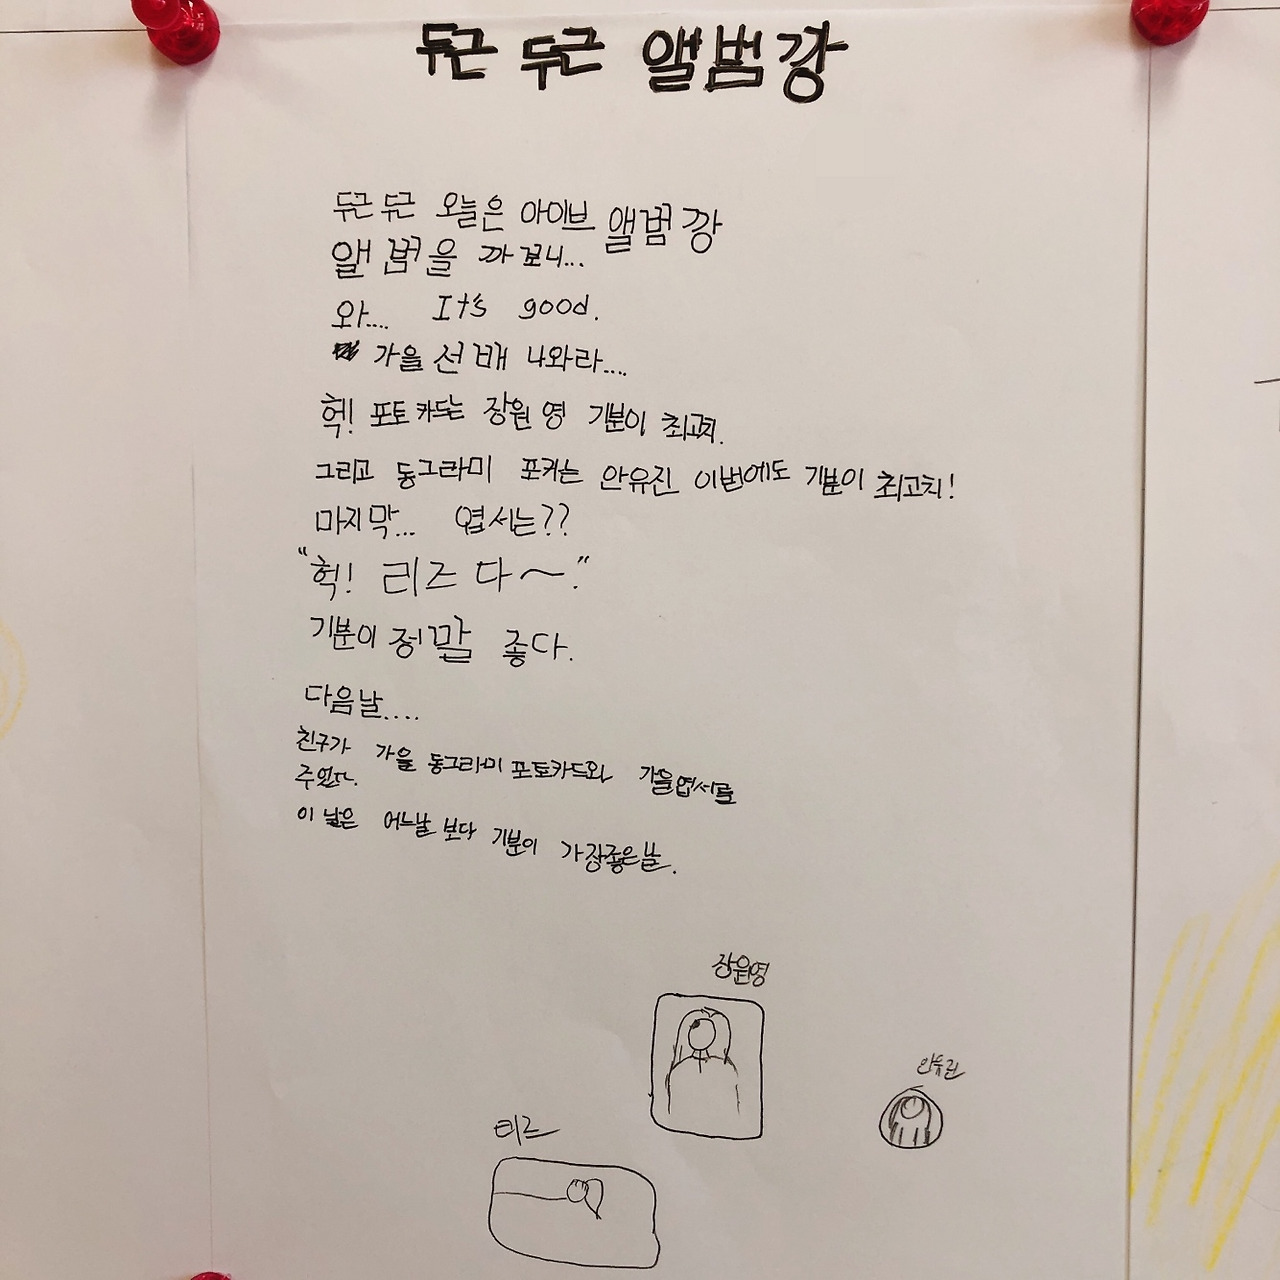 두근 두근 앨범깡
두근 두근 오늘은 아이브 앨범깡
앨범을 까보니...
와.... It's good.
가을 선배 나와라....
헉! 포토카드는 장원영 기분이 최고치.
그리고 동그라미 포카는 안유진 이번에도 기분이 최고치!
마지막... 엽서는??
"헉! 리즈다~."
기분이 정말 좋다.
다음날....
친구가 가을 동그라미 포토카드와 가을엽서를
주었다.
이 날은 어느날 보다 기분이 가장좋은날.
장원영
안유진
리즈